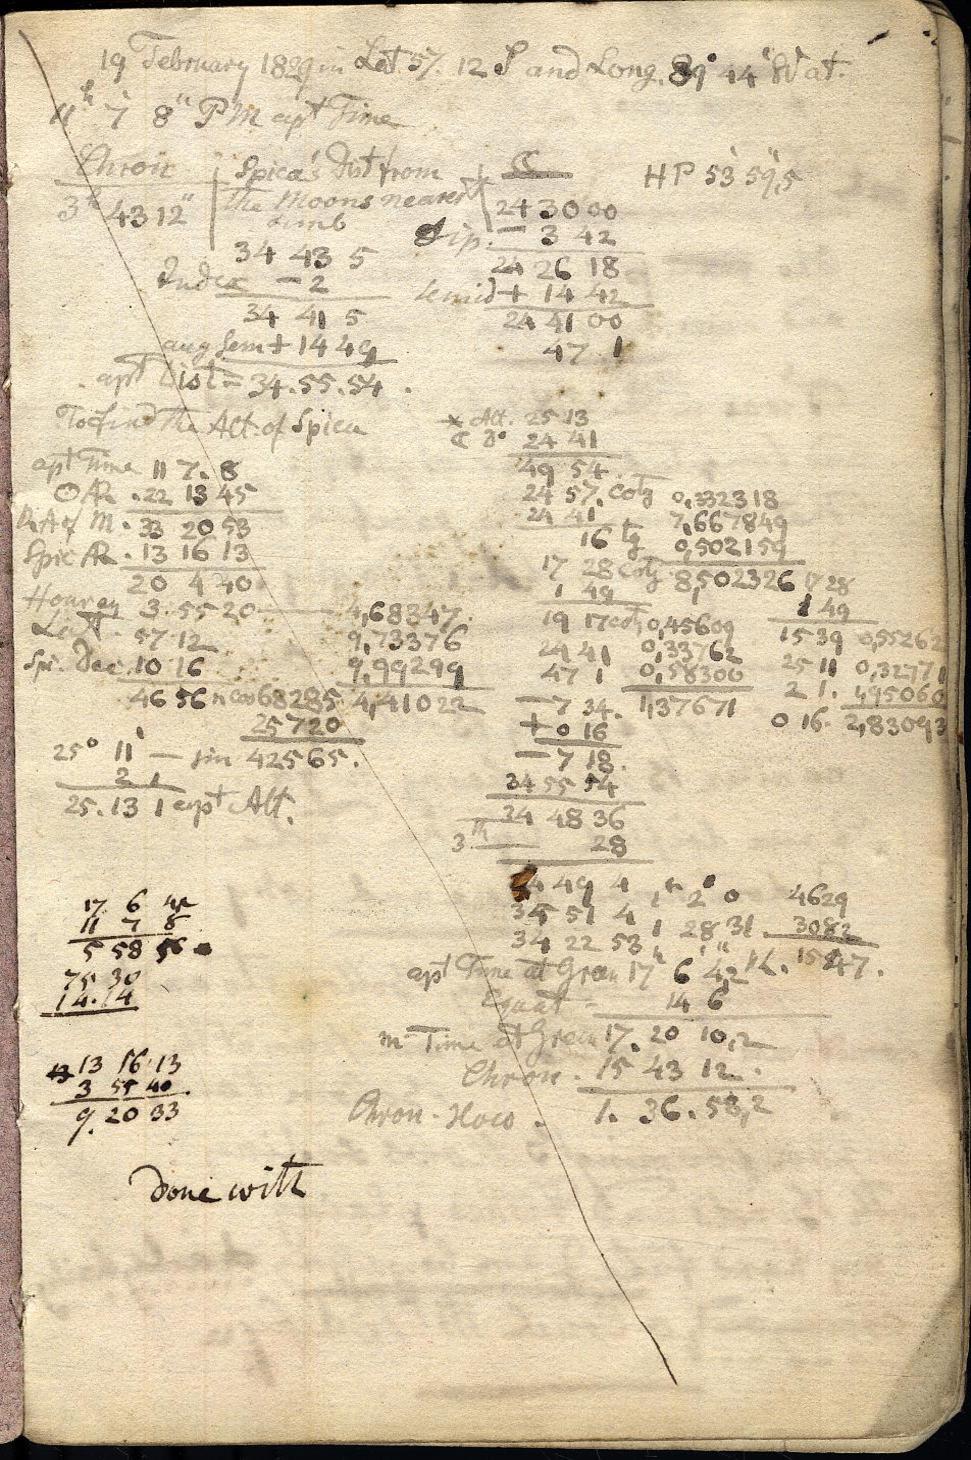 19 February 1829 in Lat 57. 12 S and Long. 89° 44" W at.
11h 7' 8" PM apt Time
Chron
3h 43 12"
Spica's Dist from
the Moons nearest
Limb
34 43 5
Index - 2
34 41 5
aug Sem + 14 49
apt Dist = 34.55.54.
☾
24 30 00
Dip. - 3 42
24 26 18
Semid + 14 42
24 41 00
47 1
HP 53' 59",5
To find the Alt. of Spica
apt Time 11 7. 8
☉ AR. 22 13 45
RA of M. 33 20 53
Spic AR. 13 16 13
20 4 40
Hour ag 3. 55 20 — 4,68347.
Latt. 57 12 9,73376
Spi. Dec. 10 16 9,99299
46 56 n cos 68285. 4,41022
25720
25° 11' — sin 42565.
2 1
25. 13 1 apt Alt.
* Alt. 25 13
☾ D° 24 41
49 54
24 57. cotg 0,332318
24 41 7,667849
16 tg 0,502159
17 28 cotg 8,502326
1 49
19 17 cotg 0,45609
24 41 0,33762
47 1 0,58300
- 7 34. 1,37671
+ 0 16
- 7 18.
34 55 54
34 48 36
3th 28
34 49 4
35 51 4
34 22 53
17 28
1 49
15 39 0,55262
25 11 0,32771
2 1. 1,95060
0 16. 2,83093
1h 2° 0 4629
1 28 31 3082
1547.
apt Time at Green 17h 6' 4,2"
Equat - 14 6
m Time at Green 17. 20 10,2
Chron. 15 43 12.
Chron. Slow. 1. 36. 58,2
17 6 4
11 7 8
5 58 56
75 30
14.14
13 16 13
3 55 40
9. 20 33
Done with